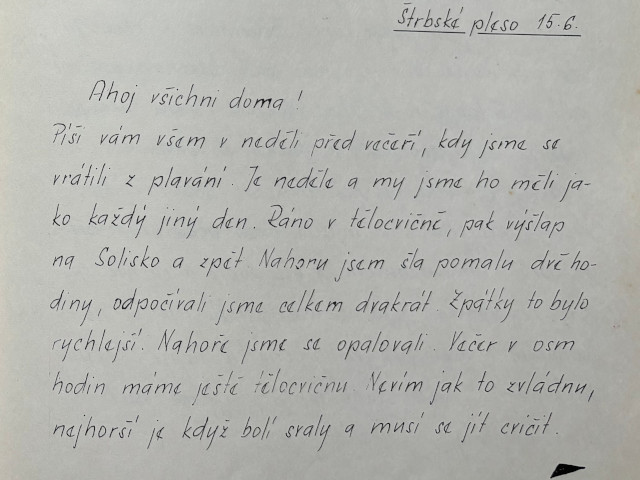 Štrbské pleso 15.6.
Ahoj všichni doma!
Píši vám všem v neděli před večeří, kdy jsme se
vrátili z plavání. Je neděle a my jsme ho měli ja-
ko každý jiný den. Ráno v tělocvičně, pak výšlap
na Solisko a zpět. Nahoru jsem šla pomalu dvě ho-
diny, odpočívali jsme celkem dvakrát. Zpátky to bylo
rychlejší. Nahoře jsme se opalovali. Večer v osm
hodin máme ještě tělocvičnu. Nevím jak to zvládnu,
nejhorší je když bolí svaly a musí se jít cvičit.